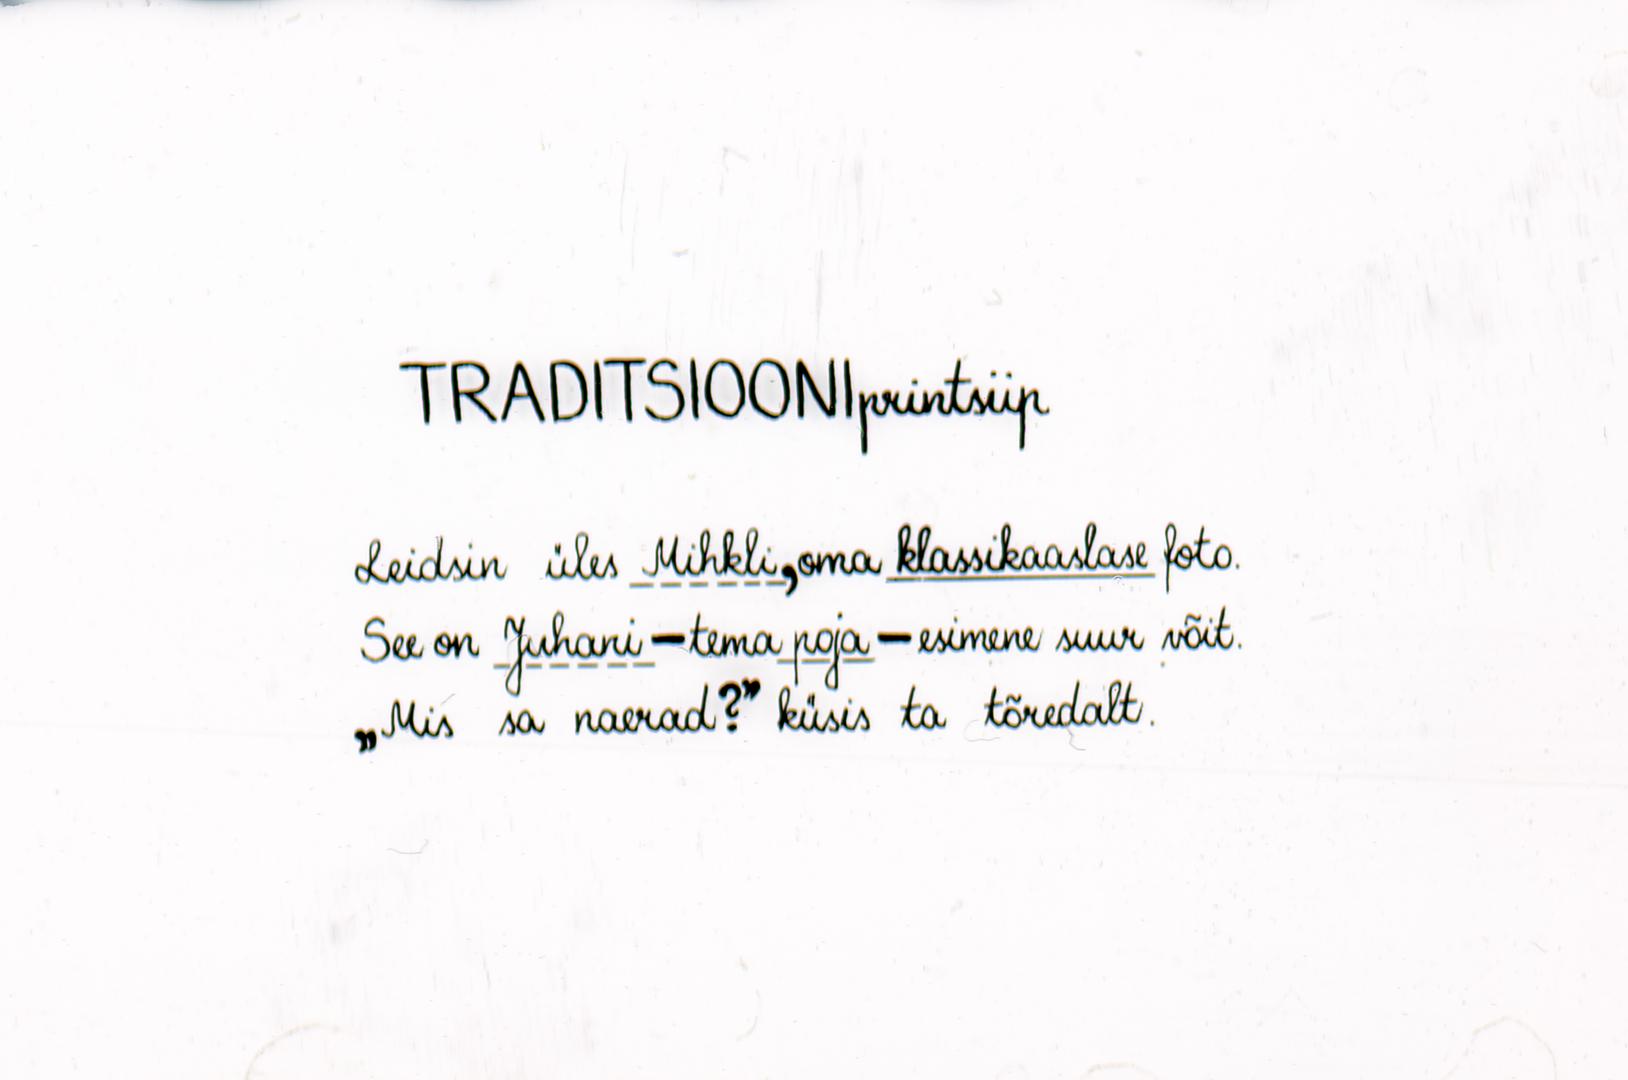 TRADITSIOONIprintsiip
Leidsin üles Mihkli, oma klassikaaslase foto.
See on Juhani – tema poja – esimene suur võit.
„Mis sa naerad?” küsis ta tõredalt.